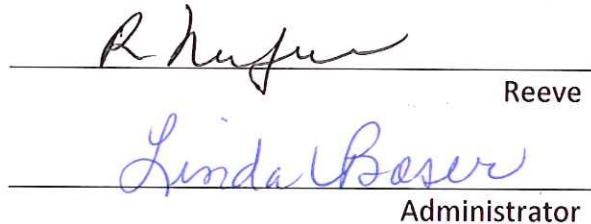 R
Reeve
Linda Boser
Administrator